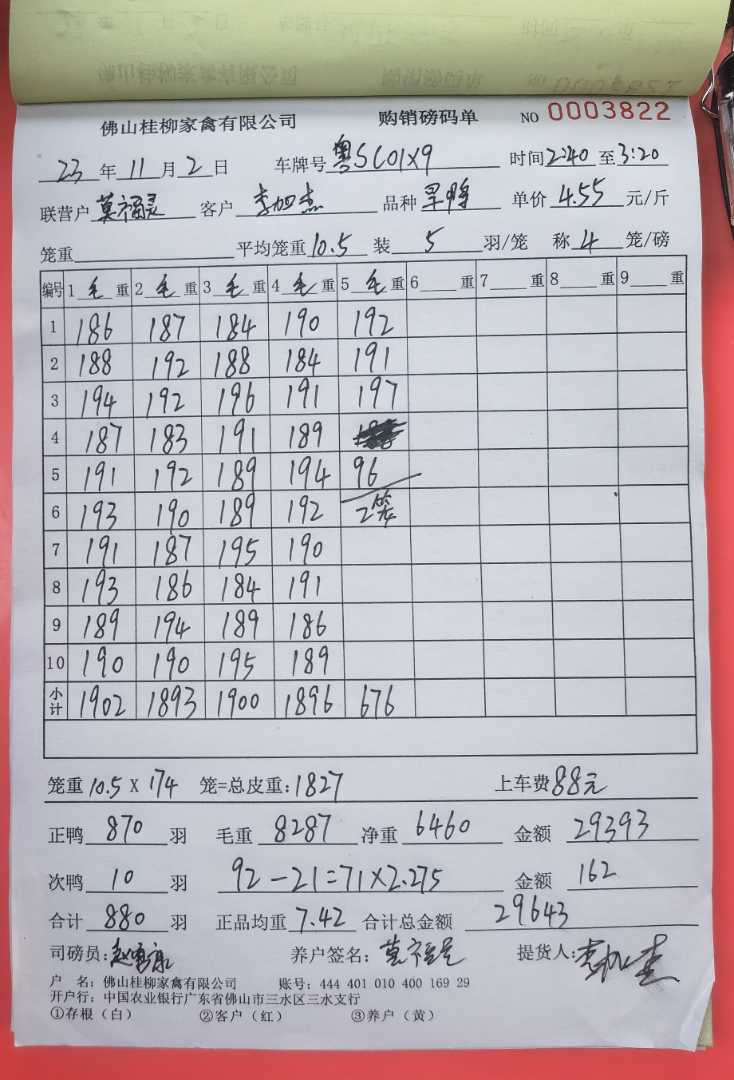 佛山桂柳家禽有限公司 购销磅码单 NO 0003822
23 年 11 月 2 日 车牌号 粤SC01X9 时间 2:40 至 3:20
联营户 莫福灵 客户 李旭杰 品种 单价 4.55 元/斤
笼重 平均笼重 10.5 装 5 羽/笼 称 4 笼/磅
编号 1 毛 重 2 毛 重 3 毛 重 4 毛 重 5 毛 重 6 重 7 重 8 重 9 重
1 186 187 184 190 192
2 188 192 188 184 191
3 194 192 196 191 197
4 187 183 191 189
5 191 192 189 194 96
6 193 190 189 192 2笼
7 191 187 195 190
8 193 186 184 191
9 189 194 189 186
10 190 190 195 189
小计 1902 1893 1900 1896 676
笼重 10.5 X 174 笼=总皮重: 1827 上车费 88元
正鸭 870 羽 毛重 8287 净重 6460 金额 29393
次鸭 10 羽 92-21=71×2.275 金额 162
合计 880 羽 正品均重 7.42 合计总金额 29643
司磅员: 养户签名: 提货人:
户 名: 佛山桂柳家禽有限公司 账号: 444 401 010 400 169 29
开户行: 中国农业银行广东省佛山市三水区三水支行
①存根（白） ②客户（红） ③养户（黄）